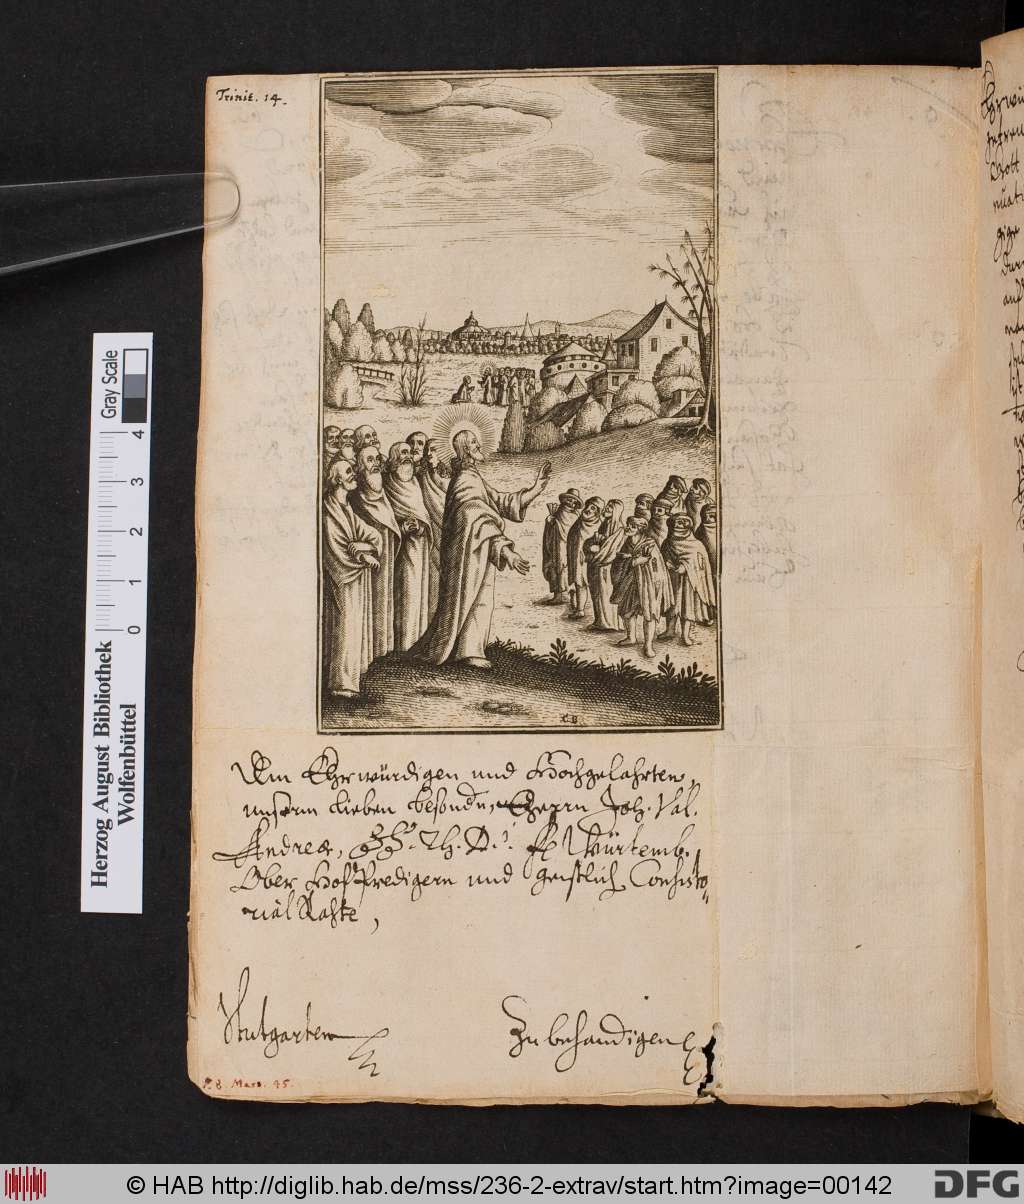 Trinit. 14.
C B
Dem Ehrwürdigen und Hochgelahrten,
unserm lieben besondn, Herrn Joh. Val.
Andreæ, Th. D. Würtemb.
Ober HoffPredigern und geistlich Consisto-
rial Rahte,
Stutgarten
Zu behandigen
P. 8. Mars. 45.
Herzog August Bibliothek
Wolfenbüttel
0 1 2 3 4
Gray Scale
© HAB http://diglib.hab.de/mss/236-2-extrav/start.htm?image=00142
DFG